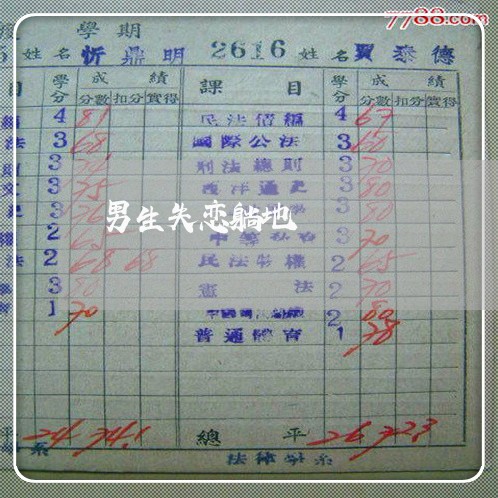 7788.com
學期
5 姓名 忻鼎明 2616 姓名 賈泰德
目 學分 成績 課目 學分 成績
分數 扣分 實得 分數 扣分 實得
4 81 民法債編 4 67
法 3 68 國際公法 3 60
3 刑法總則 3 70
3 75 西洋通史 3 80
3 3 80
2 3 70
法 2 68 68 民法物權 2 65
3 80 憲法 2 70
1 70 2 80
普通體育 1 78
男生失恋躺地
平 24 74.1 總平 26 72.3
系 法律學系